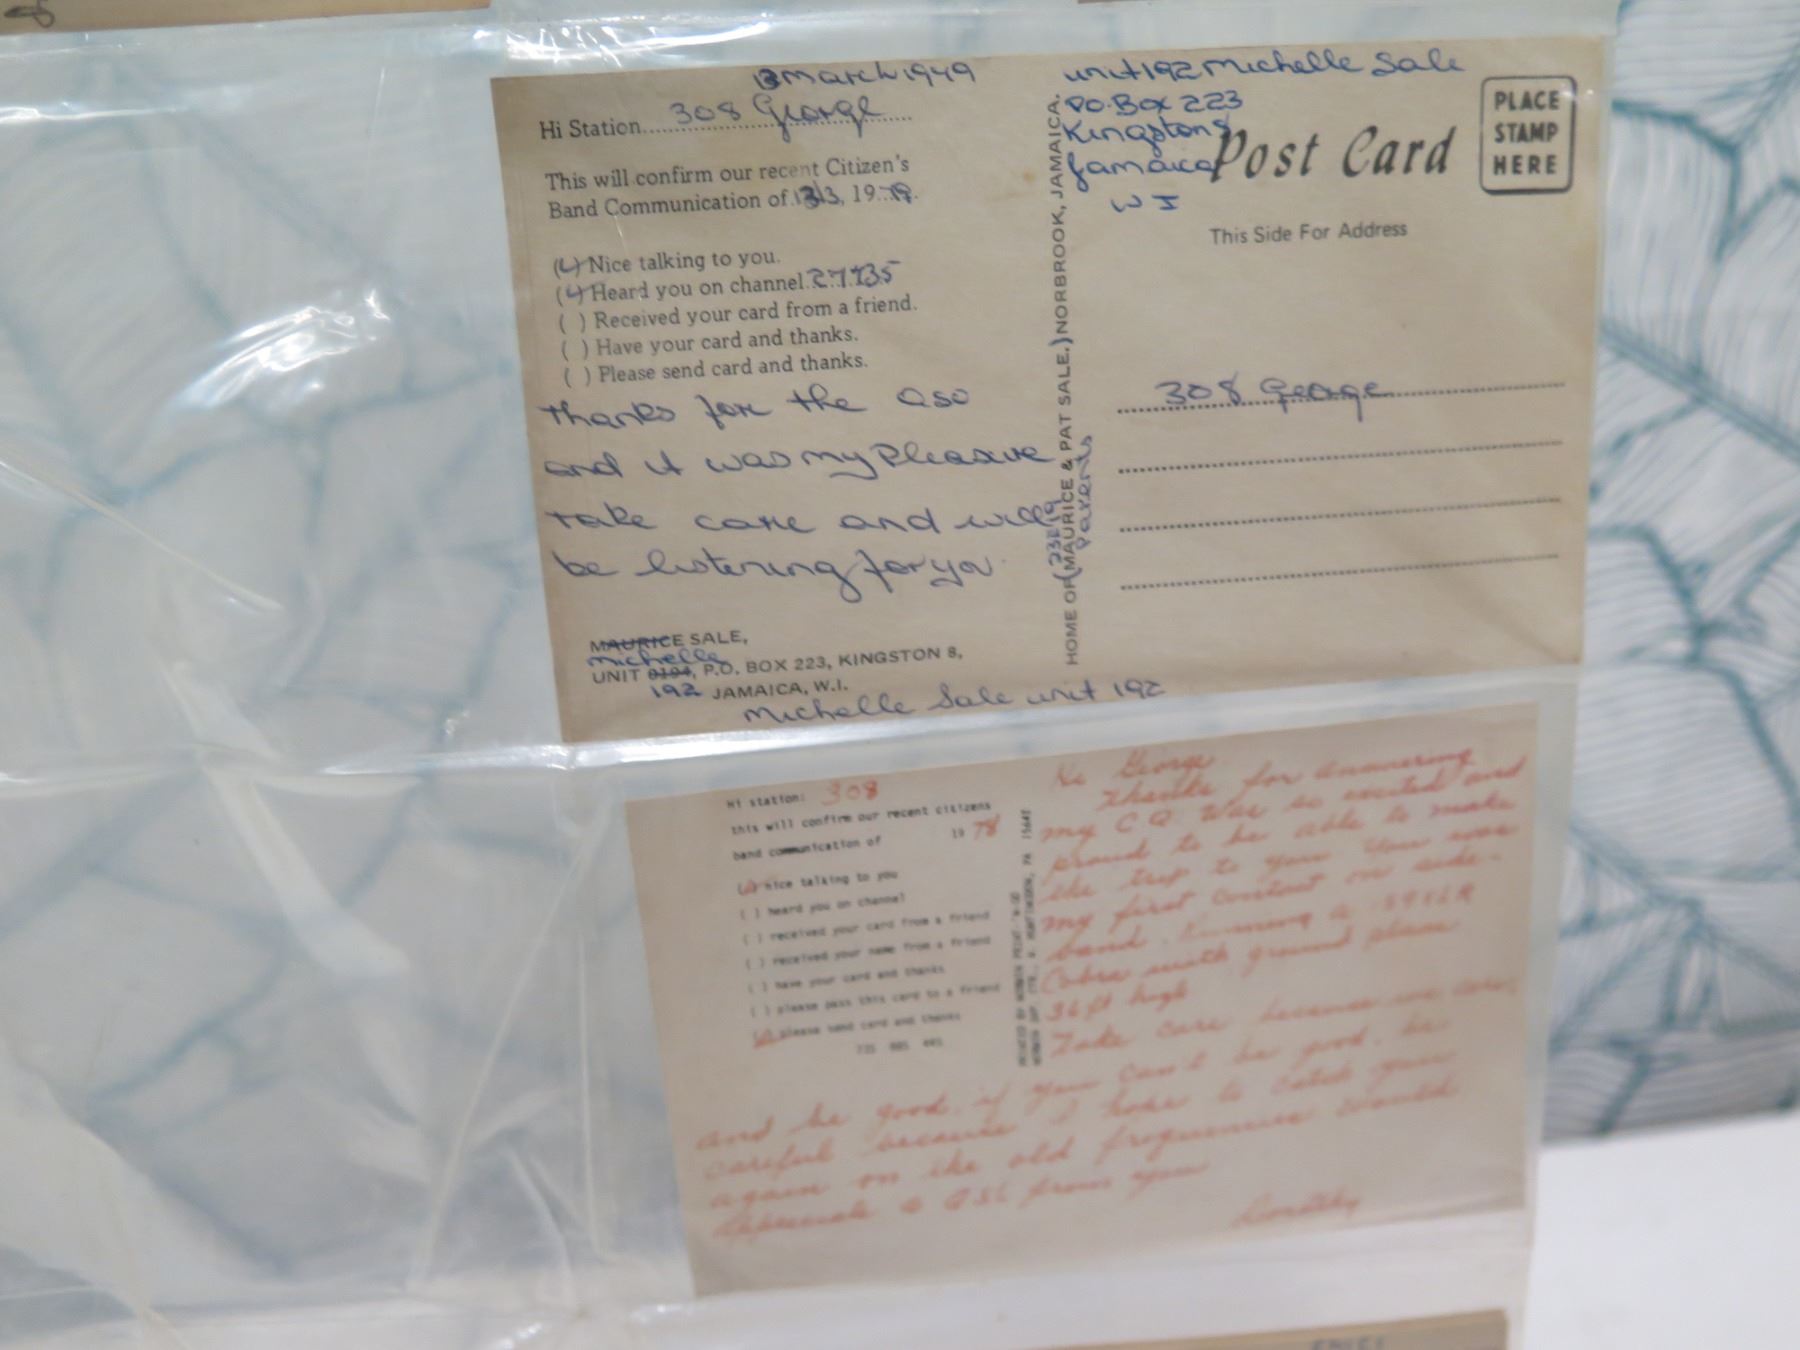 13 March 1979
Hi Station 308 George
This will confirm our recent Citizen's
Band Communication of 13/3, 1979.
( ) Nice talking to you.
( ) Heard you on channel
( ) Received your card from a friend.
( ) Have your card and thanks.
( ) Please send card and thanks.
thanks for the QSO
and it was my Pleasure
take care and will
be listening for you
MAURICE SALE,
michelle
UNIT 0194, P.O. BOX 223, KINGSTON 8,
192 JAMAICA, W.I.
Michelle Sale unit 192
HOME OF (MAURICE & PAT SALE.) NORBROOK, JAMAICA.
Parents
unit 192 Michelle Sale
P.O. Box 223
Kingston 8
Jamaica
W I
Post Card
PLACE
STAMP
HERE
This Side For Address
308 George
Hi station: 308
this will confirm our recent citizens
band communication of 19 78
( ) nice talking to you
( ) heard you on channel
( ) received your card from a friend
( ) received your name from a friend
( ) have your card and thanks
( ) please pass this card to a friend
( ) please send card and thanks
Hi George
Thanks for answering
my C Q Was so excited and
proud to be able to make
the trip to you You was
my first contact on side-
band. Running a
Cobra with ground plane
36 ft high
Take care because we care,
and be good, if you can't be good, be
careful because I hope to catch you
again on the old frequencies would
appreciate a QSL from you
Dorothy